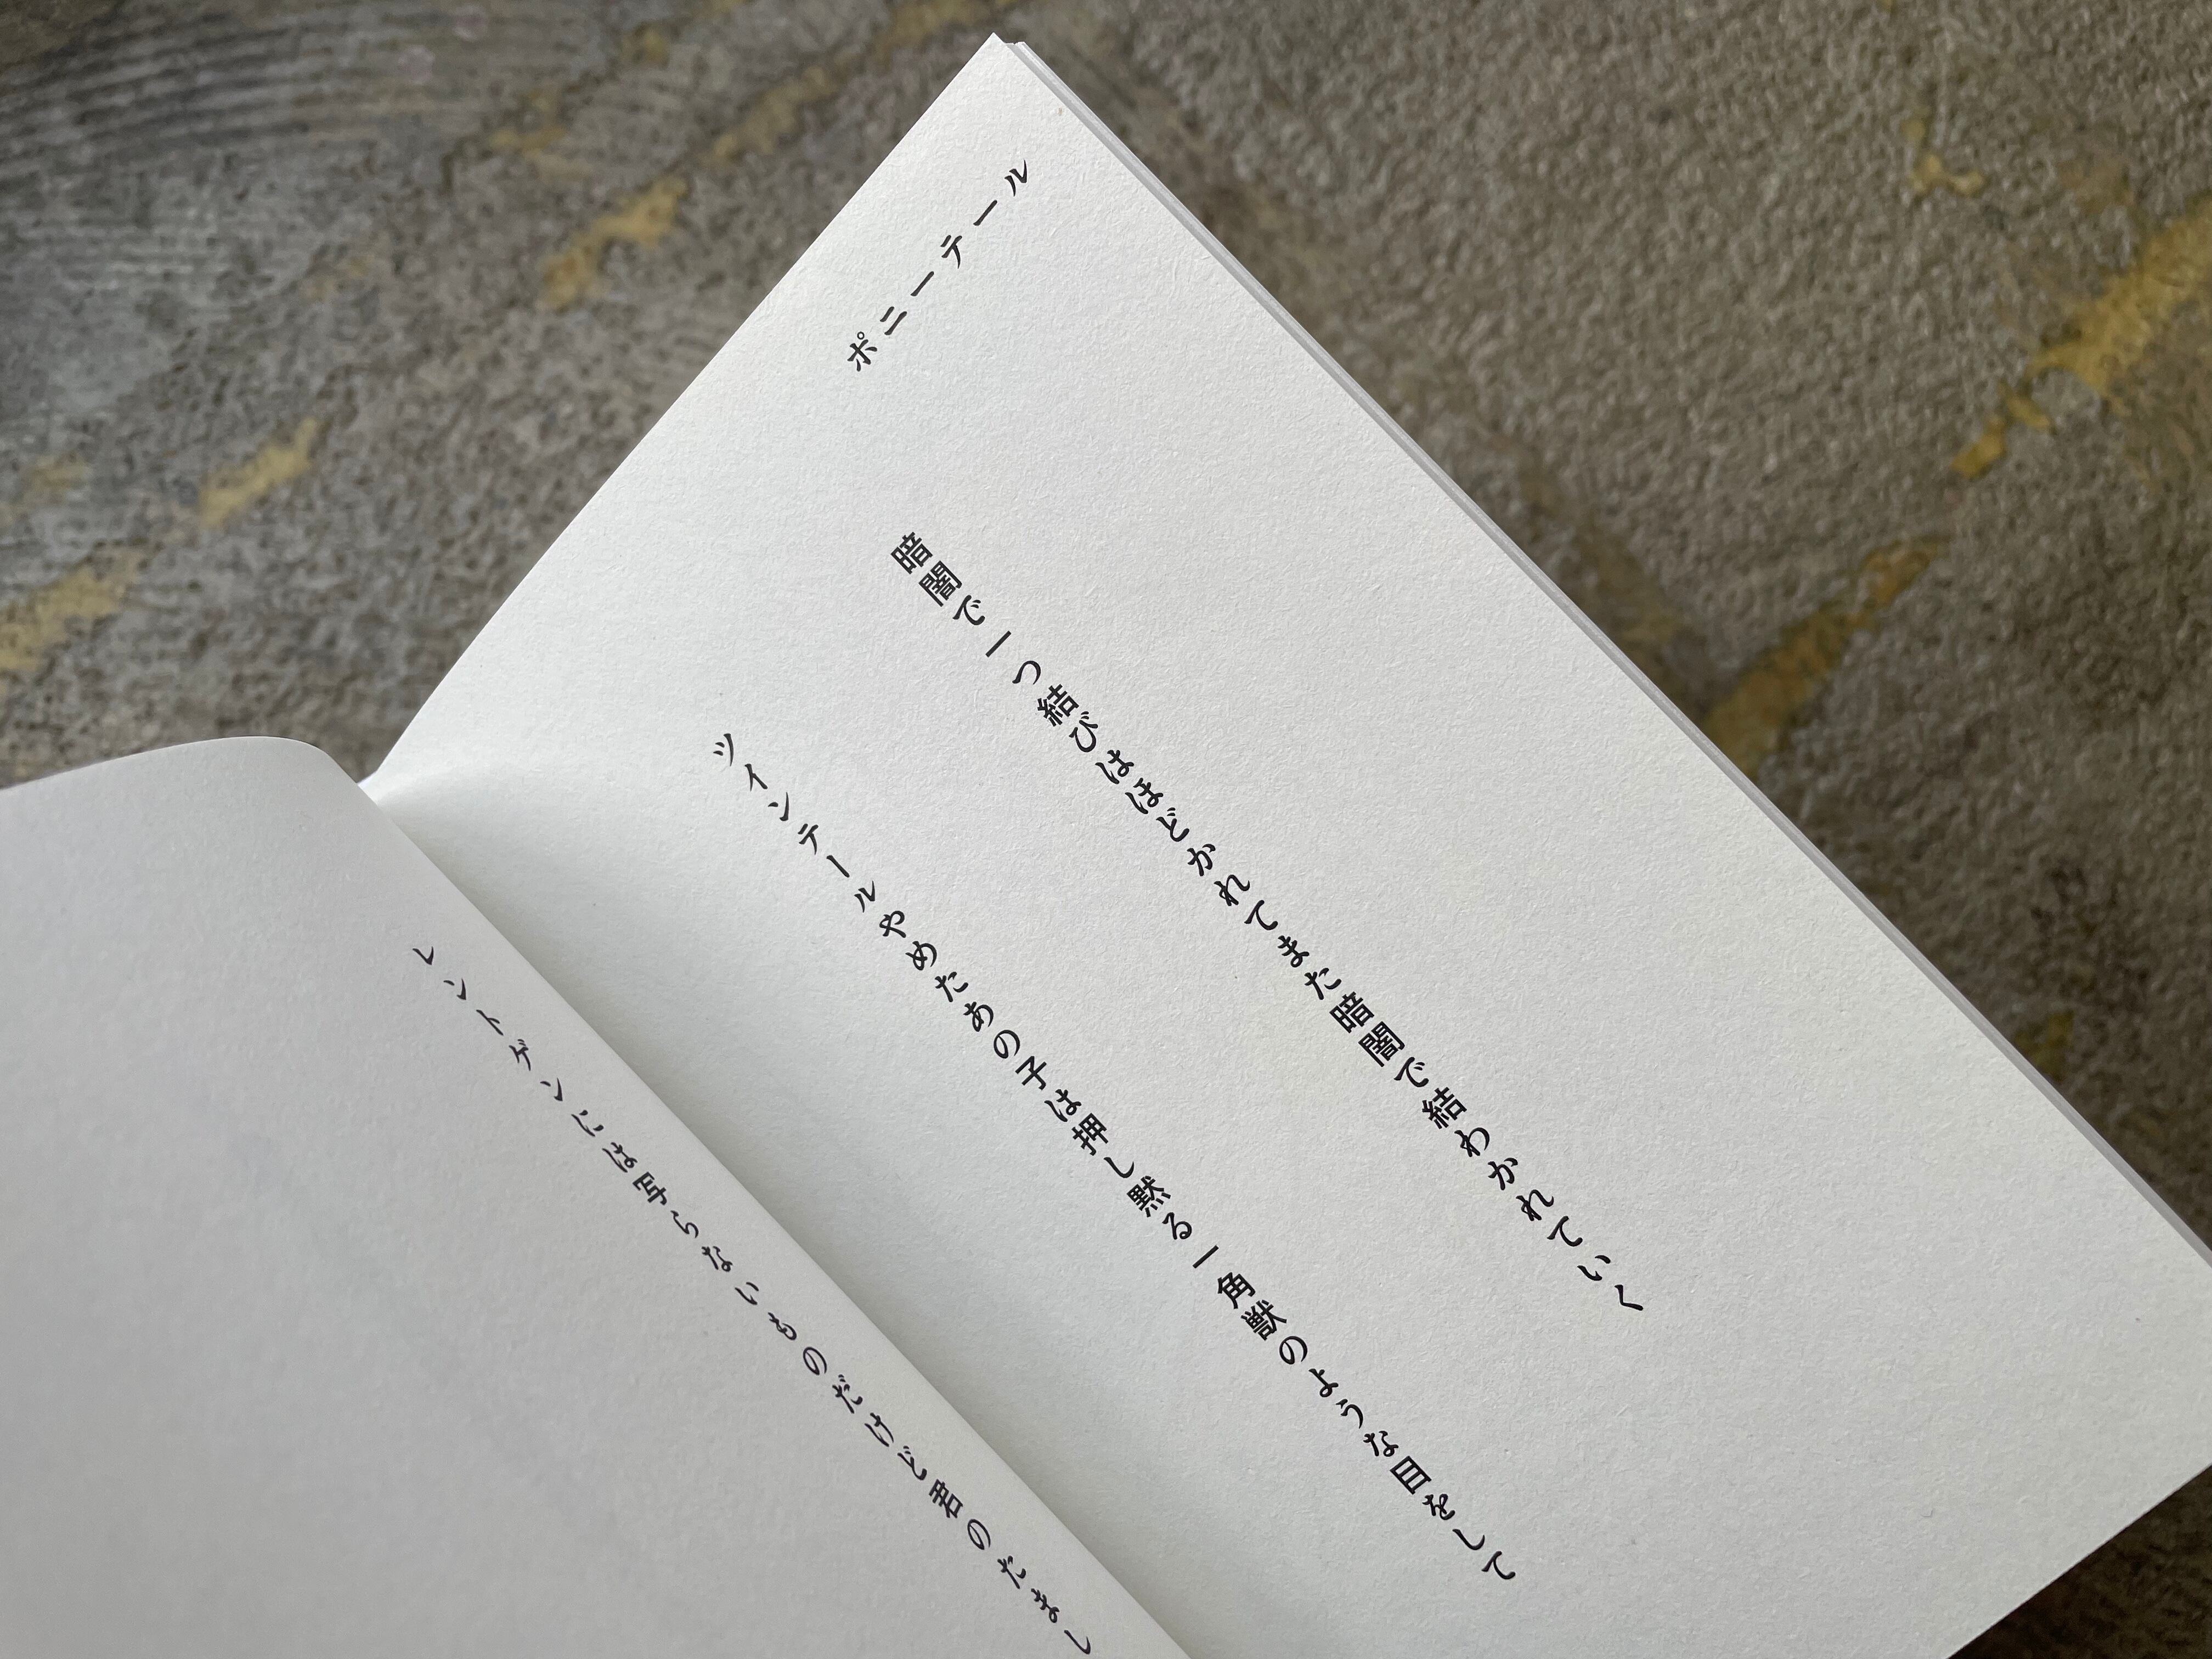 ポニーテール
暗闇で一つ結びはほどかれてまた暗闇で結わかれていく
ツインテールやめたあの子は押し黙る一角獣のような目をして
レントゲンには写らないものだけど君のたまし